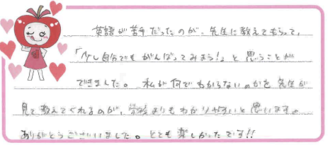 英語が苦手だったのが、先生に教えてもらって、
「少し自分でもがんばってみよう!」と思うことが
できました。私が何でわからないのかを先生が
見て教えてくれるのが、学校よりもわかりやすいと思います。
ありがとうございました。とても楽しかったです!!